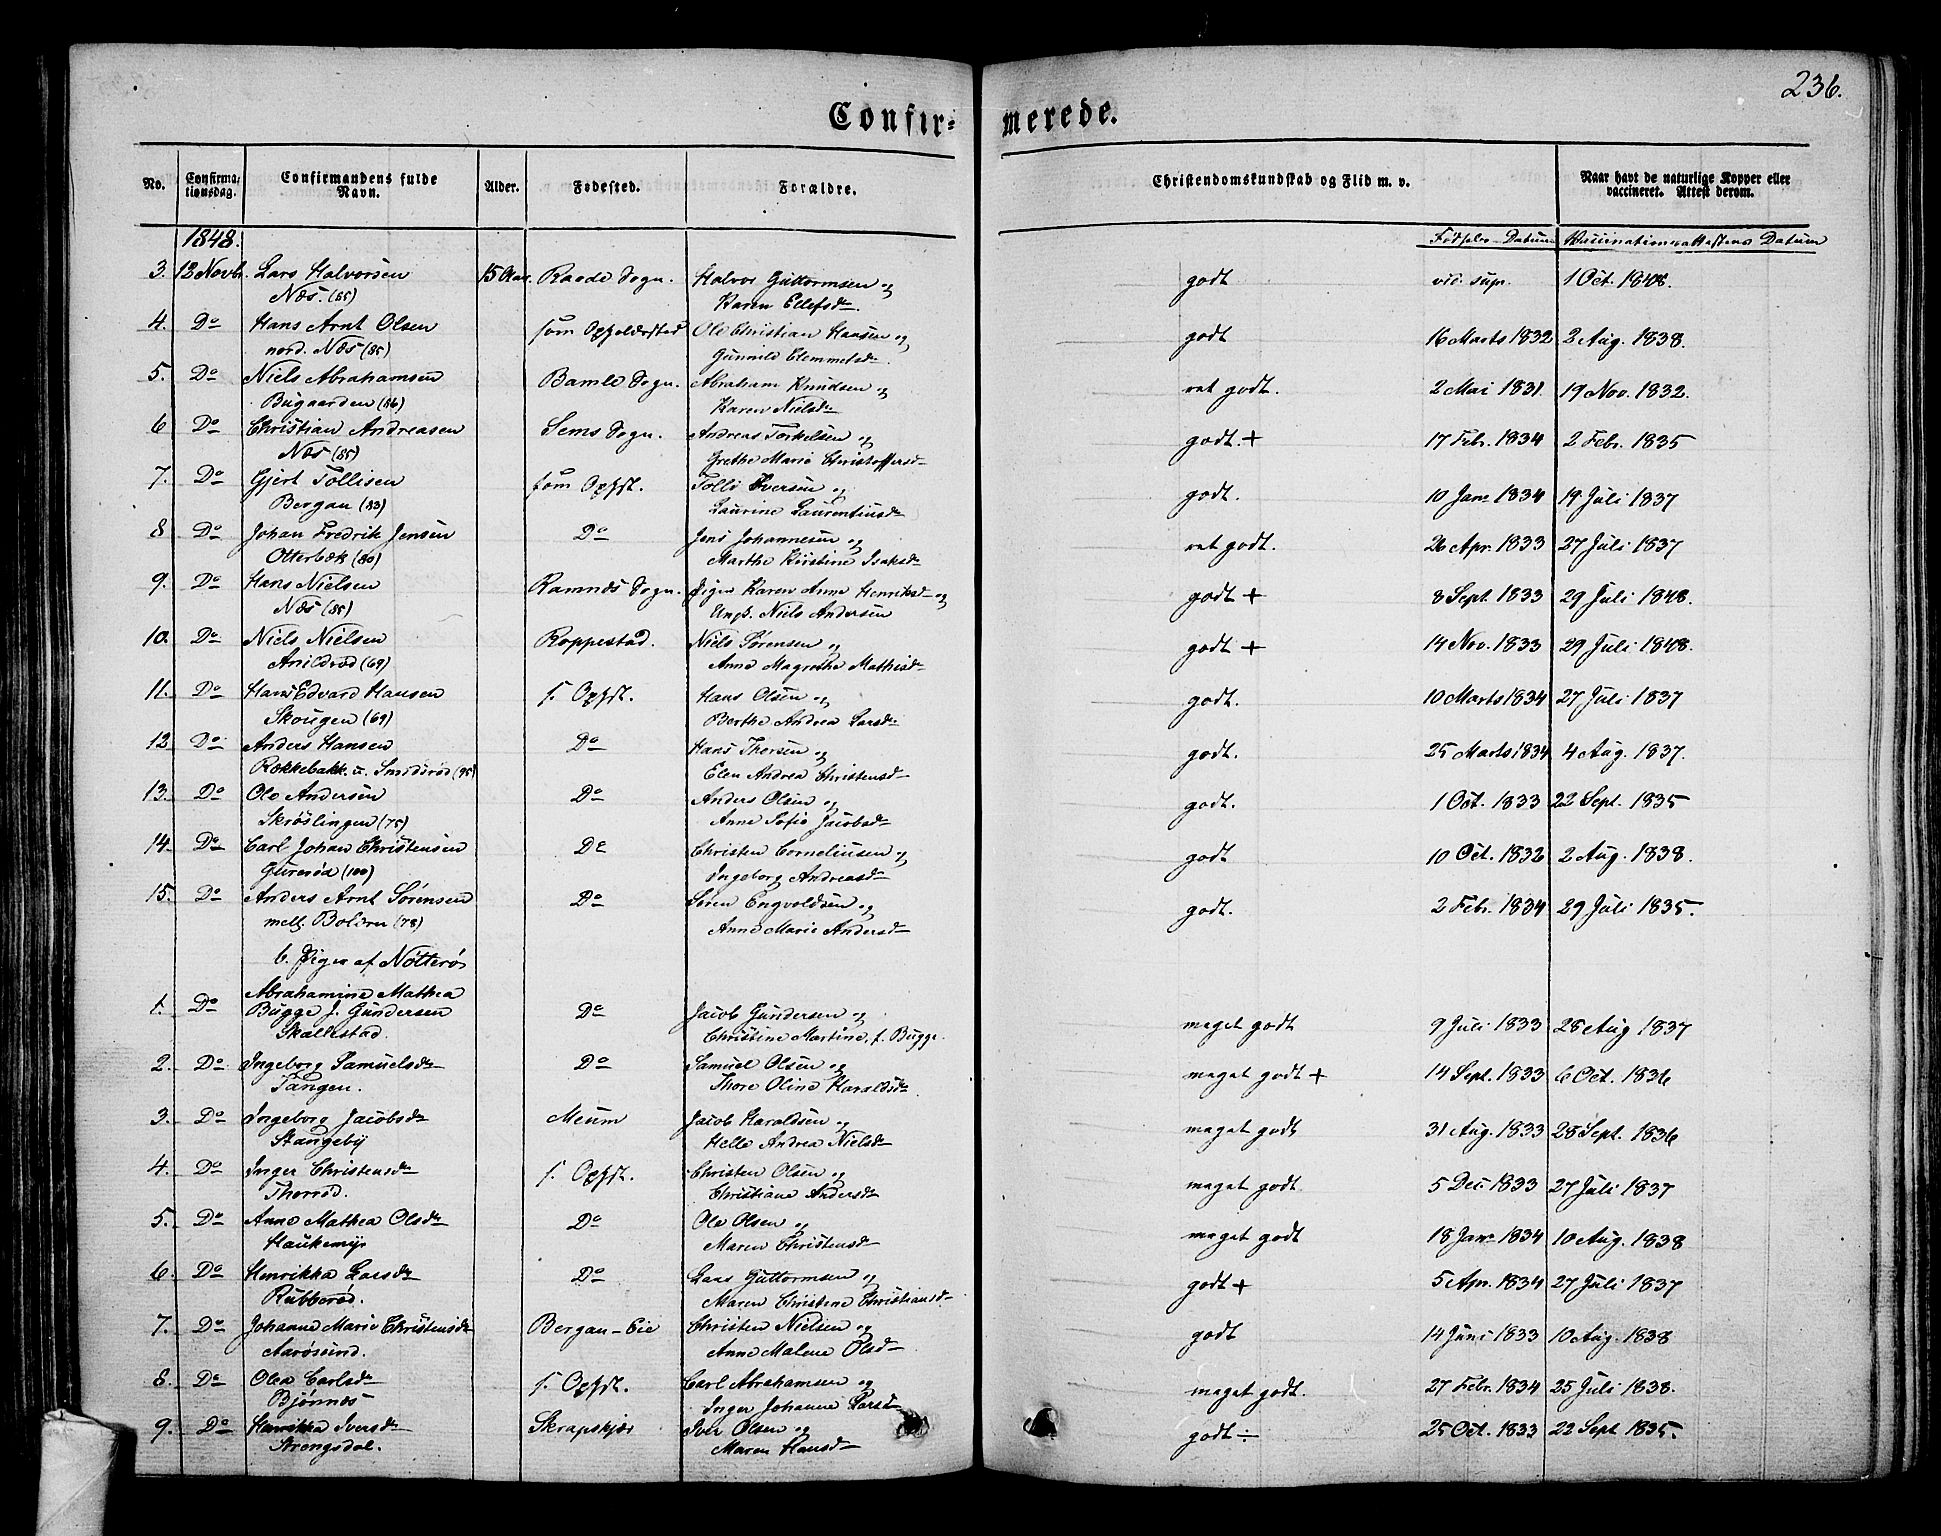 236.
Confir- merede.
No. Confirmationsdag. Confirmandens fulde Navn. Alder. Fødested. Forældre. Christendomskundskab og Flid m. v. Naar havt de naturlige Kopper eller vaccineret. Attest derom.
1848. Fødsels-Datum Vaccinationsattestens Datum
3. 12 Novb. Lars Halvorsen 15 Aar. Raade Sogn. Halvor Guttormsen og godt vid. sup. 1 Oct. 1848.
Næs. (85) Karen Ellefsdr.
4. Do Hans Arnt Olsen som Opholdssted Ole Christian Hansen og godt 16 Marts 1832 2 Aug. 1838.
nord. Næs (85) Gunnild Clemmetsdr.
5. Do Niels Abrahamsen Bamle Sogn. Abraham Knudsen og ret godt. 2 Mai 1831. 19 Nov. 1832.
Bugaarden (86) Karen Nielsdr
6 Do Christian Andreasen Sems Sogn. Andreas Torkelsen og godt + 17 Feb. 1834 2 Febr. 1835
Næs (85) Grethe Marie Christoffersdr
7. Do Gjert Tollisen som Opst. Tolle Iversen og godt. 10 Janr 1834 19 Juli 1837
Bergan (83) Laurine Laurentiusdr
8 Do Johan Fredrik Jensen Do Jens Johannesen og ret godt. 26 Apr. 1833 27 Juli 1837
Otterbæk (80) Marthe Kirstine Isaksdr
9. Do Hans Nielsen Ramnæs Sogn. Pigen Karen Anne Henriksdr og godt + 8 Sept. 1833 29 Juli 1848.
Næs (85) Ungk. Niels Andersen
10. Do Niels Nielsen Roppestad. Niels Sørensen og godt + 14 Nov. 1833 29 Juli 1848.
Arildrød (69) Anne Magrethe Mathisdr
11. Do Hans Edvard Hansen s. Opst. Hans Olsen og godt. 10 Marts 1834 27 Juli 1837
Skougen (69) Berthe Andrea Larsdr
12 Do Anders Hansen Do Hans Thorsen og godt. 25 Marts 1834 4 Aug. 1837.
Rækkebakk. u. Smidsrød (95) Elen Andrea Christensdr
13. Do Ole Andersen Do Anders Olsen og godt. 1 Oct. 1833 22 Sept. 1835
Skrøslingen (75) Anne Sofie Jacobsdr
14. Do Carl Johan Christensen Do Christen Corneliusen og godt 10 Oct. 1832 2 Aug. 1838.
Gurerød (100) Ingeborg Andreasdr
15. Do Anders Arnt Sørensen Do Søren Engvoldsen og godt. 2 Febr. 1834 29 Juli 1835.
mell. Bolæren (78) Anne Marie Andersdr
b. Piger af Nøtterø
Abrahamine Mathea
1. Do Bugge J. Gundersen Do Jacob Gundersen og meget godt 9 Juli 1833 28 Aug 1837
Skallestad. Christine Martine, f. Bugge.
2. Do Ingeborg Samuelsdr Do Samuel Olsen og meget godt + 14 Sept. 1833 6 Oct. 1836
Tangen. Thore Oline Haraldsdr
3. Do Ingeborg Jacobsdr Meum Jacob Haraldsen og meget godt 31 Aug. 1833 28 Sept. 1836
Stangeby Helle Andrea Nielsdr
4. Do Inger Christensdr s. Opst. Christen Olsen og meget godt 5 Dec. 1833 27 Juli 1837
Thorrød. Christiane Andersdr
5. Do Anne Mathea Olsdr Do Ole Olsen og meget godt 18 Janr 1834 10 Aug. 1838
Haukemyr Maren Christensdr
6. Do Henrikka Larsdr Do Lars Guttormsen og godt + 5 Apr. 1834 27 Juli 1837
Rubberød. Maren Christine Christiansdr
7. Do Johanne Marie Christensdr Bergan-Eie Christen Nielsen og godt 14 Juni 1833 10 Aug. 1838
Aarøsund. Anne Malene Olsdr
8. Do Olea Carlsdr s. Opst. Carl Abrahamsen og meget godt. 27 Febr. 1834 25 Juli 1838.
Bjønnes Inger Johanne Larsdr
9. Do Henrikka Iversdr Skrapskjær Iver Olsen og godt ÷ 25 Oct. 1833 22 Sept 1835.
Strengsdal. Maren Hansdr